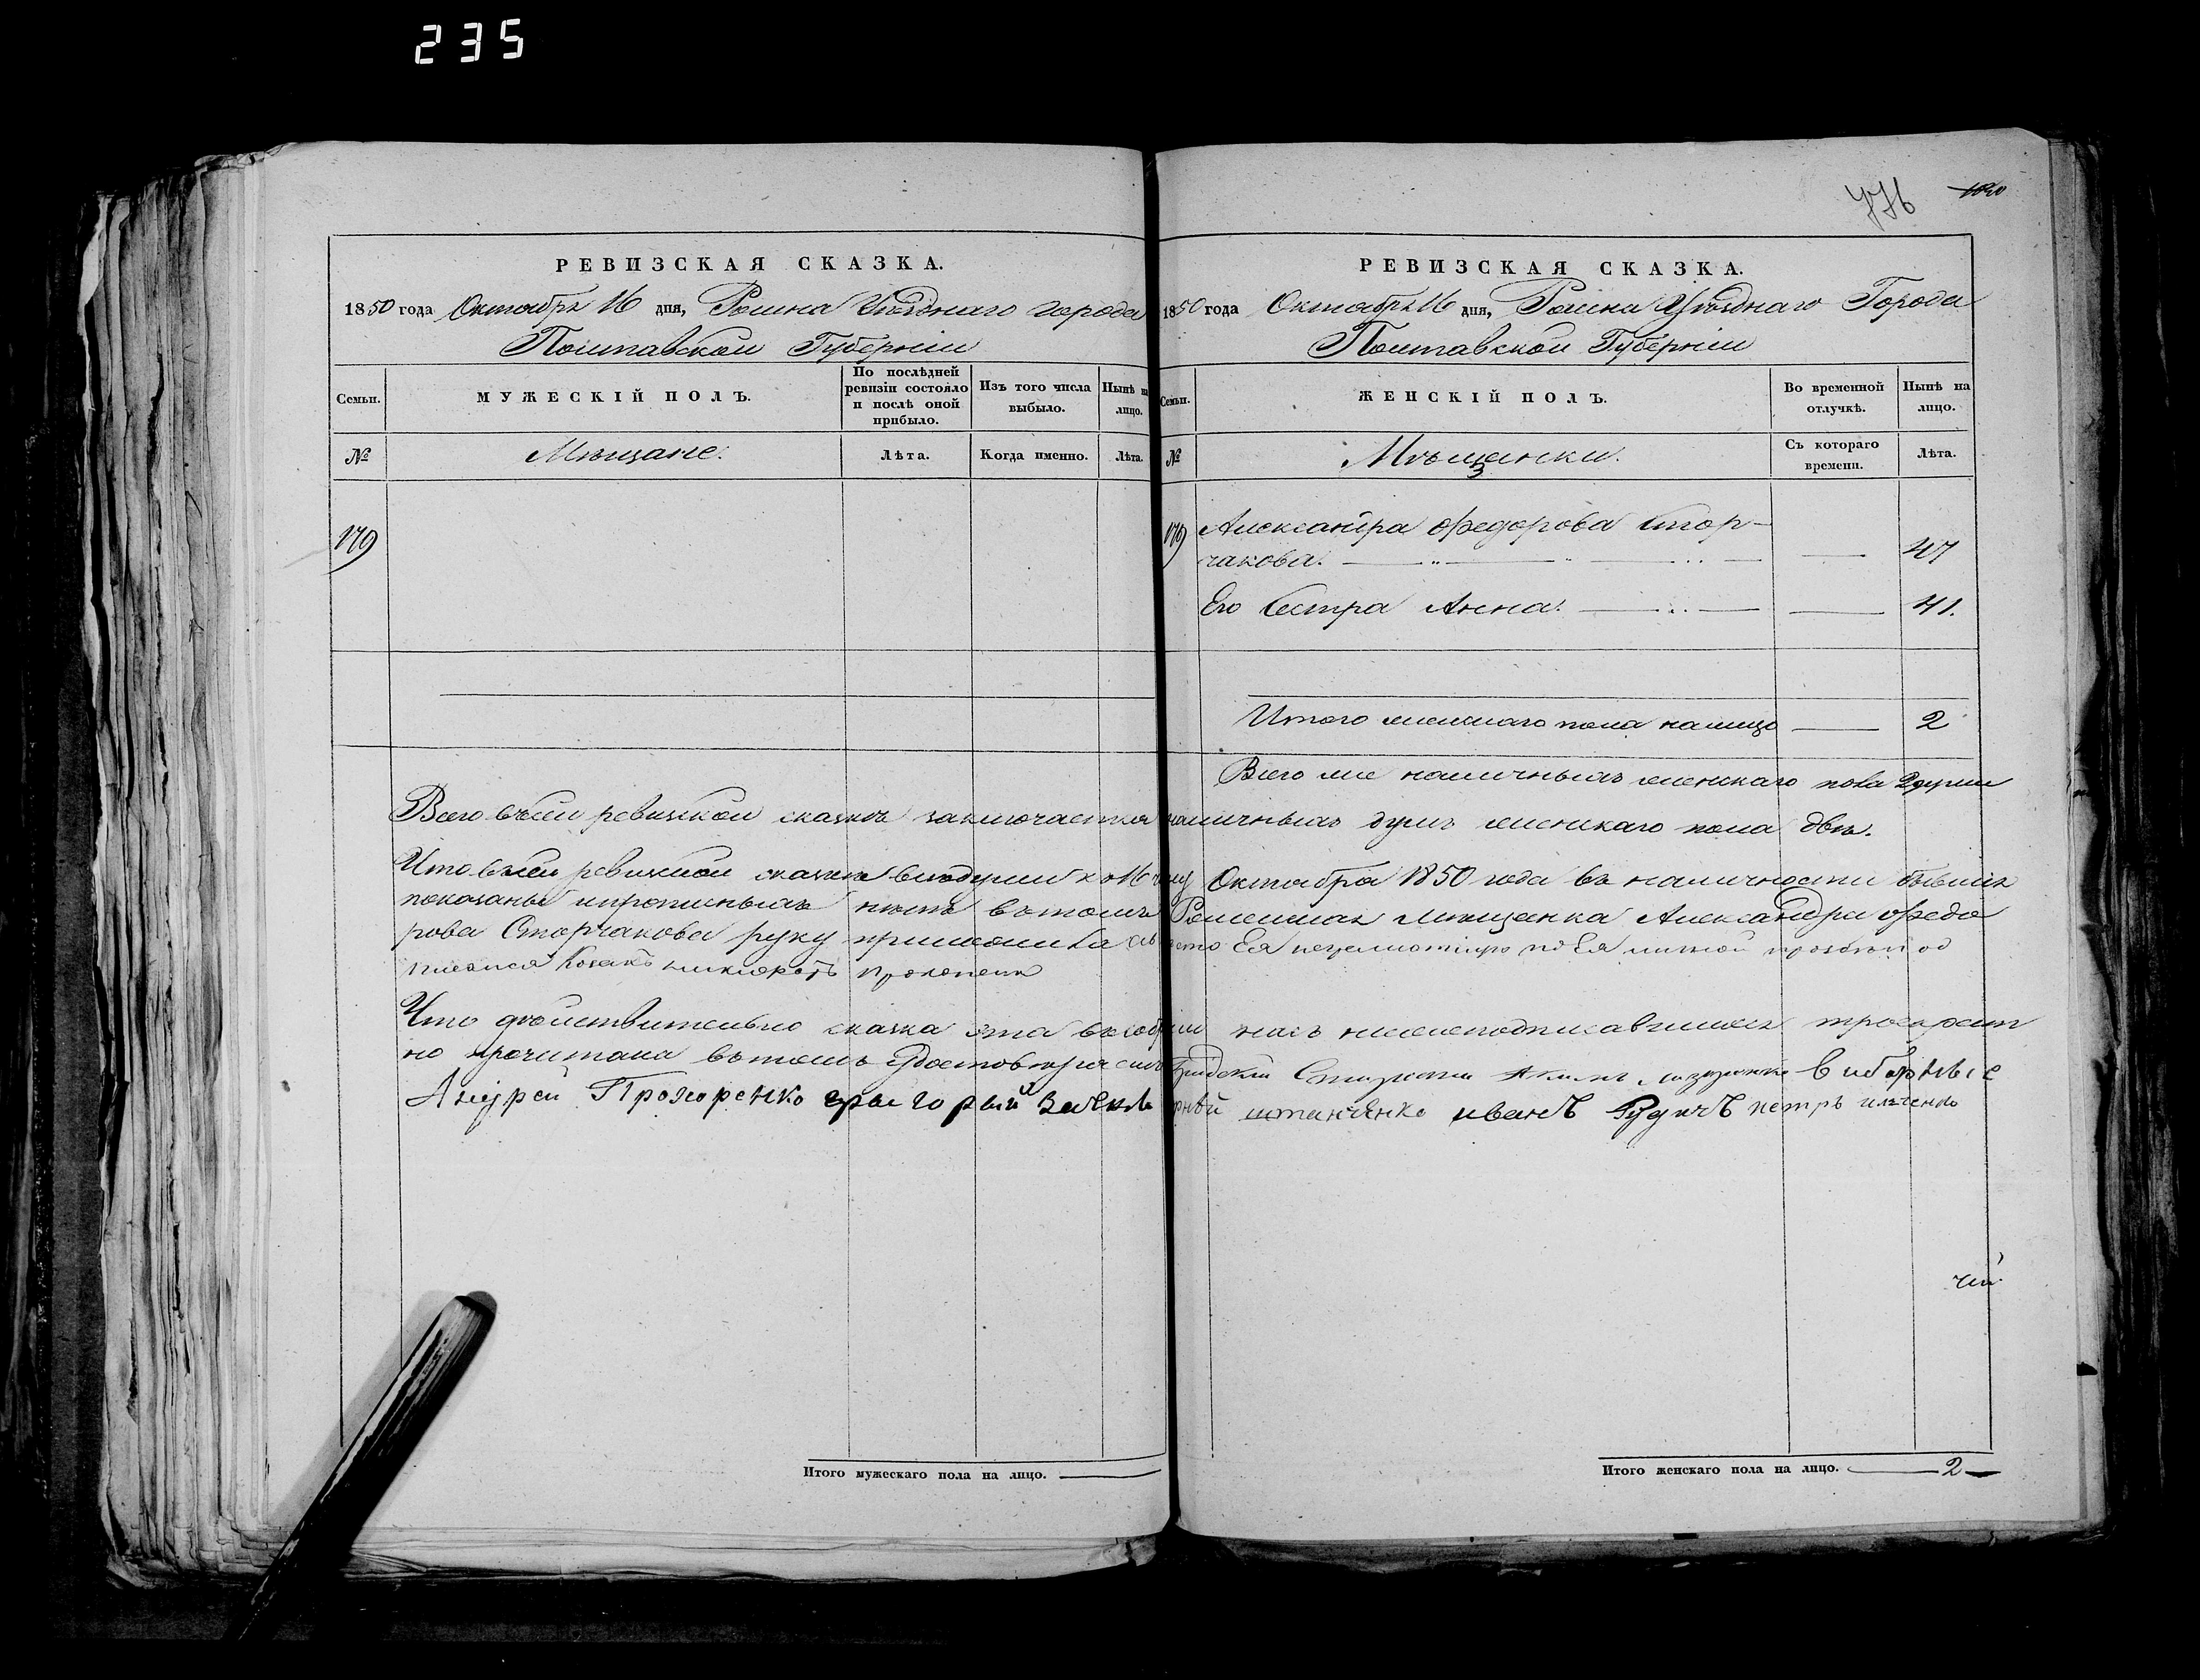 235
776
1840
РЕВИЗСКАЯ СКАЗКА.
1850 года Октября 16 дня, Ромна Уѣзднаго города
Полтавской Губерніи
Семьи.
МУЖЕСКІЙ ПОЛЪ.
По послѣдней ревизіи состояло и послѣ оной прибыло.
Изъ того числа выбыло.
Нынѣ на лицо.
№
Мѣщане.
Лѣта.
Когда именно.
Лѣта.
179
РЕВИЗСКАЯ СКАЗКА.
1850 года Октября 16 дня, Ромна Уѣзднаго Города
Полтавской Губерніи
Семьи.
ЖЕНСКІЙ ПОЛЪ.
Во временной отлучкѣ.
Нынѣ на лицо.
№
Мѣщанки.
Съ котораго времени.
Лѣта.
179
Александра Федорова Стор-
чакова. 47
Его Сестра Анна. 41.
Итого женскаго пола налицо 2
Всего же наличныхъ женскаго пола 2 души
Всего въсей ревизской сказкѣ заключается наличныхъ душъ женскаго пола двѣ.
Что въсей ревизской сказкѣ всѣ души к 16 чи Октября 1850 года въ наличности бывшія
показаны и прописныхъ нѣтъ въ томъ Роменская мѣщанка Александра Федо
рова Сторчакова руку приложила а вместо Ея неграмотную по Ея личной прозбы
Козакъ
Что действительно сказка эта въ собраніи насъ нижеподписавшихся троекрат
но прочитана въ томъ удостовѣряемъ Градскій Староста Акимъ виборные
Андрей Прохоренко григорый иванъ Рудичъ петръ илченко
чій
Итого мужескаго пола на лицо.
Итого женскаго пола на лицо. 2